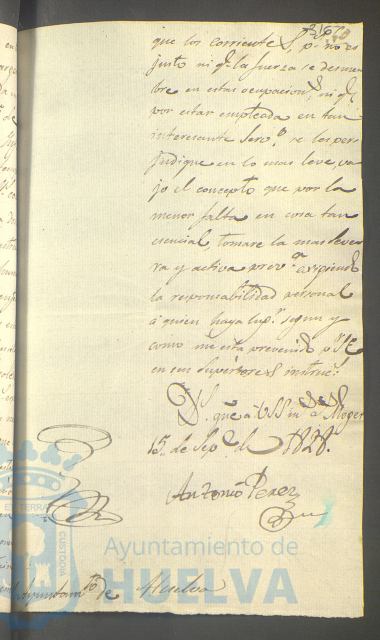 que los corrientes, p.r no es
justo ni q.e la fuerza se desmem
bre en estas ocupaciones, ni q.e
por estar empleada en tan
interesante Serv.o se les per
judique en lo mas leve, va
jo el concepto que por la
menor falta en cosa tan
esencial, tomare la mas seve
ra y activa prov.a exigiendo
la responsabilidad personal
á quien haya lug.r segun y
como me esta prevenido p.r S.E.
en sus Superiores instruc.s
D.s gue a VSS m.s a.s Moguer
15 de Sep.e de 1828.
Antonio Perez
Ayuntam.to de Huelva
Ayuntamiento de
HUELVA
ET TERRÆ
CUSTODIA